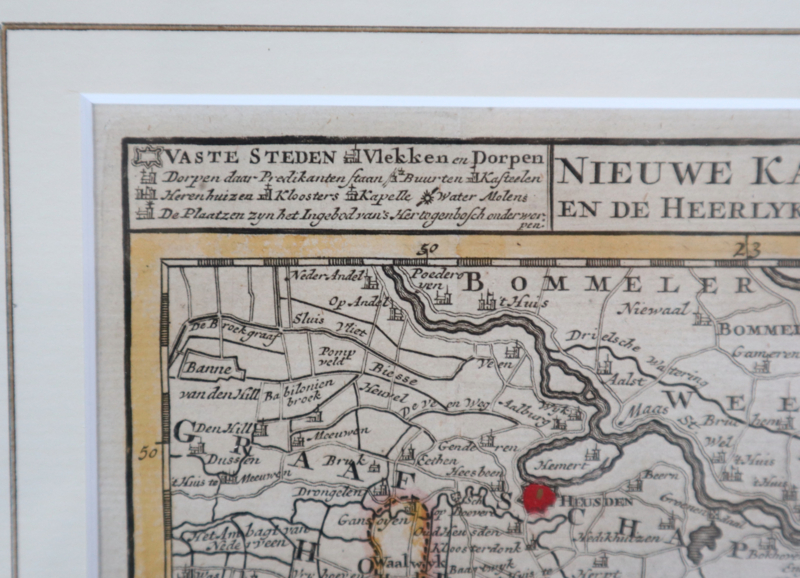 VASTE STEDEN Vlekken en Dorpen
Dorpen daar Predikanten staan Buurten Kasteelen
Herenhuizen Kloosters Kapelle Water Molens
De Plaatzen zyn het Ingebod van's Hertogenbosch onderwor-
pen.
NIEUWE KA
EN DE HEERLYK
50
23
Neder Andel
Poedero
yen
BOMMELER
Op Andel
't Huis
Niewaal
BOMMEL
De Broekgraaf
Sluis Vliet
Drielsche Watering
Gameren
Pomp
veld
Veen
Banne
Biesse
Aalst
van den Hill
Babilonien
broek
Heuvel
De Veen Weg
Aalburg
Wyk
Maas
WEE
Den Hill
Meeuwen
Genderen
Wel
50
GRAAFSCHAP
Dussen
Bruk
Eethen
Hemert
't Huis
't Huis
Meeuwen
Heesbeen
Beern
Drongelen
HEUSDEN
Gansoyen
op Dooveren
Het Ambagt van
Nederveen
Oud Heusden
Hedikhuizen
HO
Waalwyk
Kloosterdonk
Baartwyk
Herpt